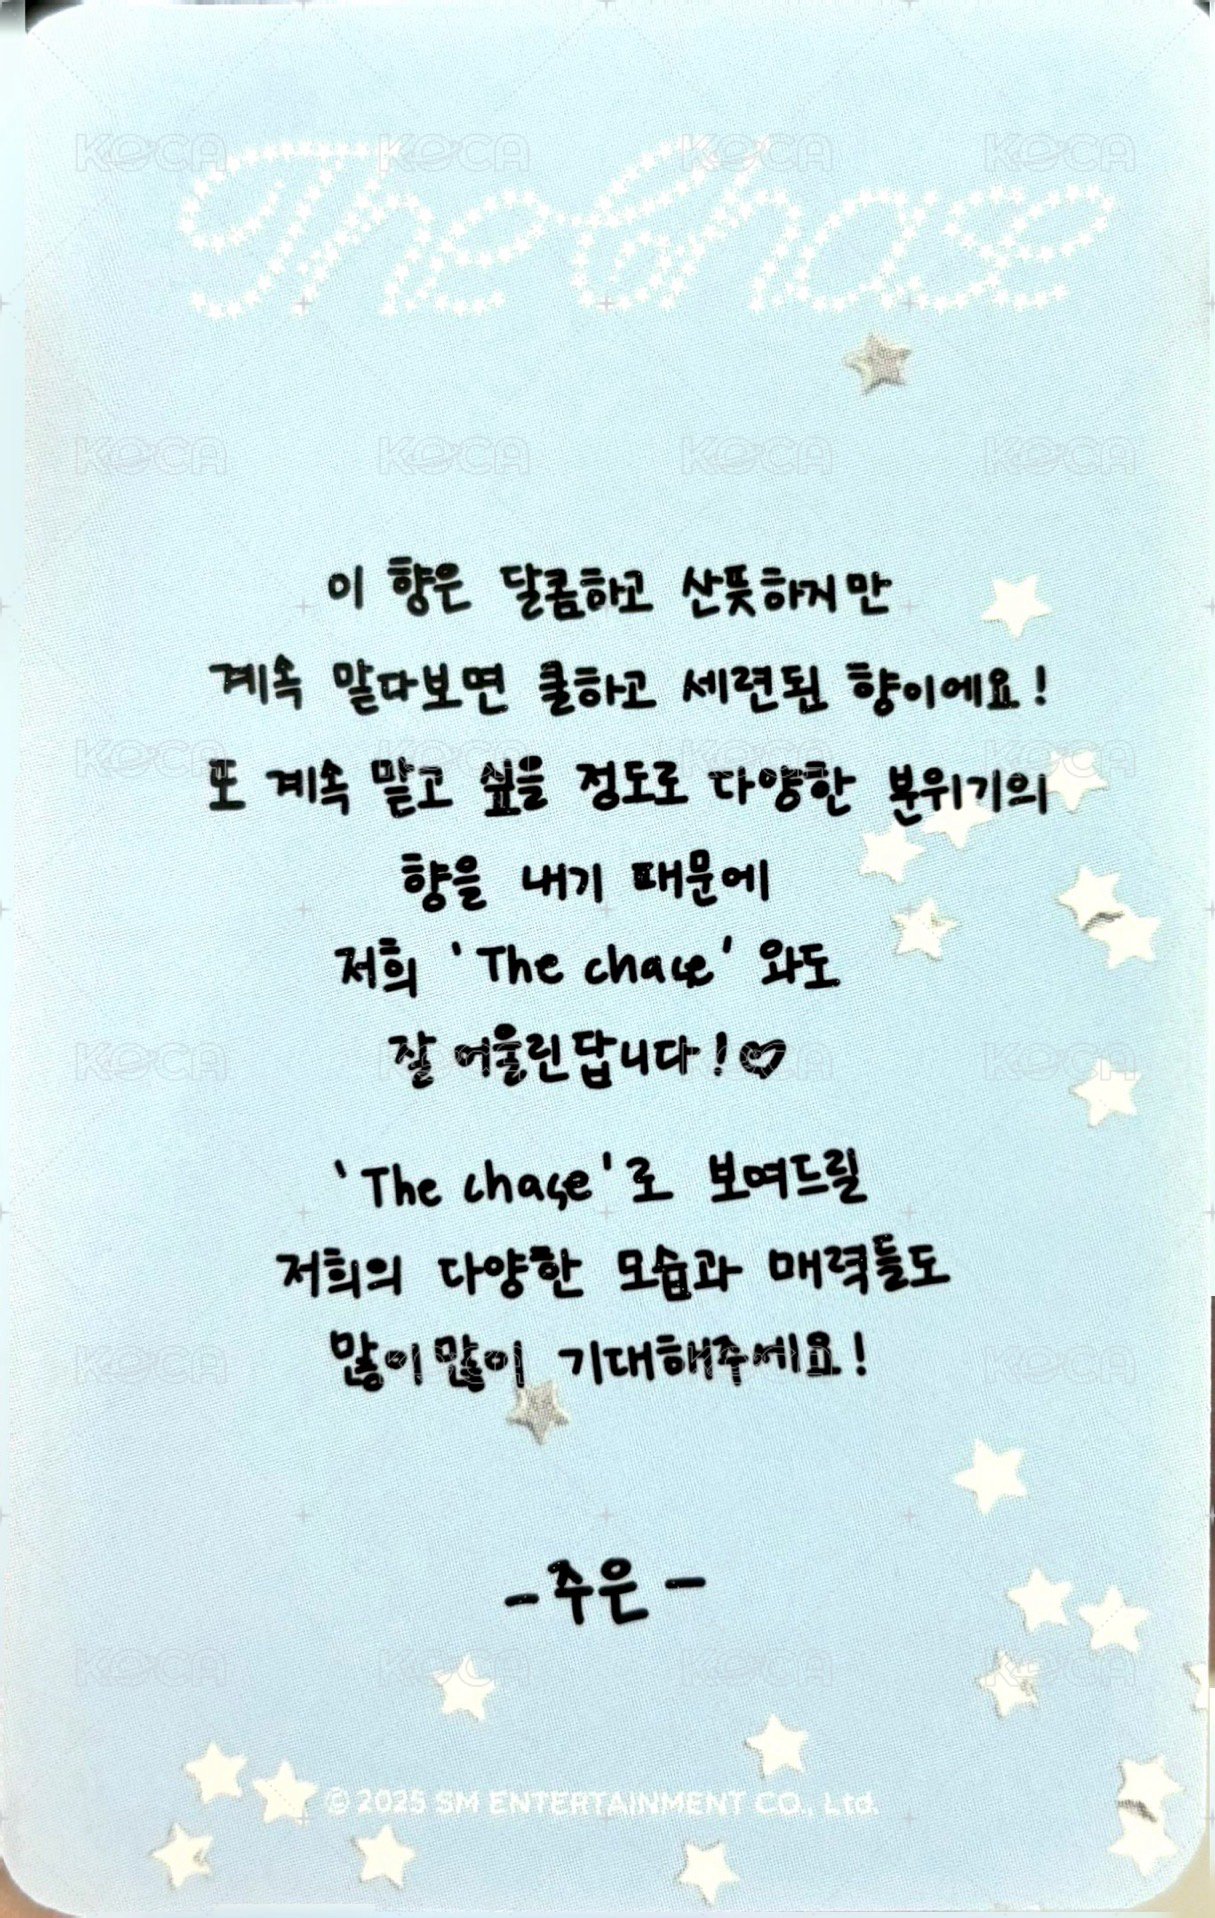 The Chase
이 향은 달콤하고 산뜻하지만
계속 맡다보면 쿨하고 세련된 향이에요!
또 계속 맡고 싶을 정도로 다양한 분위기의
향을 내기 때문에
저희 'The chase' 와도
잘 어울린답니다!♡
'The chase'로 보여드릴
저희의 다양한 모습과 매력들도
많이많이 기대해주세요!
-주은-
© 2025 SM ENTERTAINMENT CO., Ltd.
KOCA KOCA KOCA KOCA
KOCA KOCA KOCA KOCA
KOCA KOCA KOCA KOCA
KOCA KOCA KOCA KOCA
KOCA KOCA KOCA KOCA
KOCA KOCA KOCA KOCA